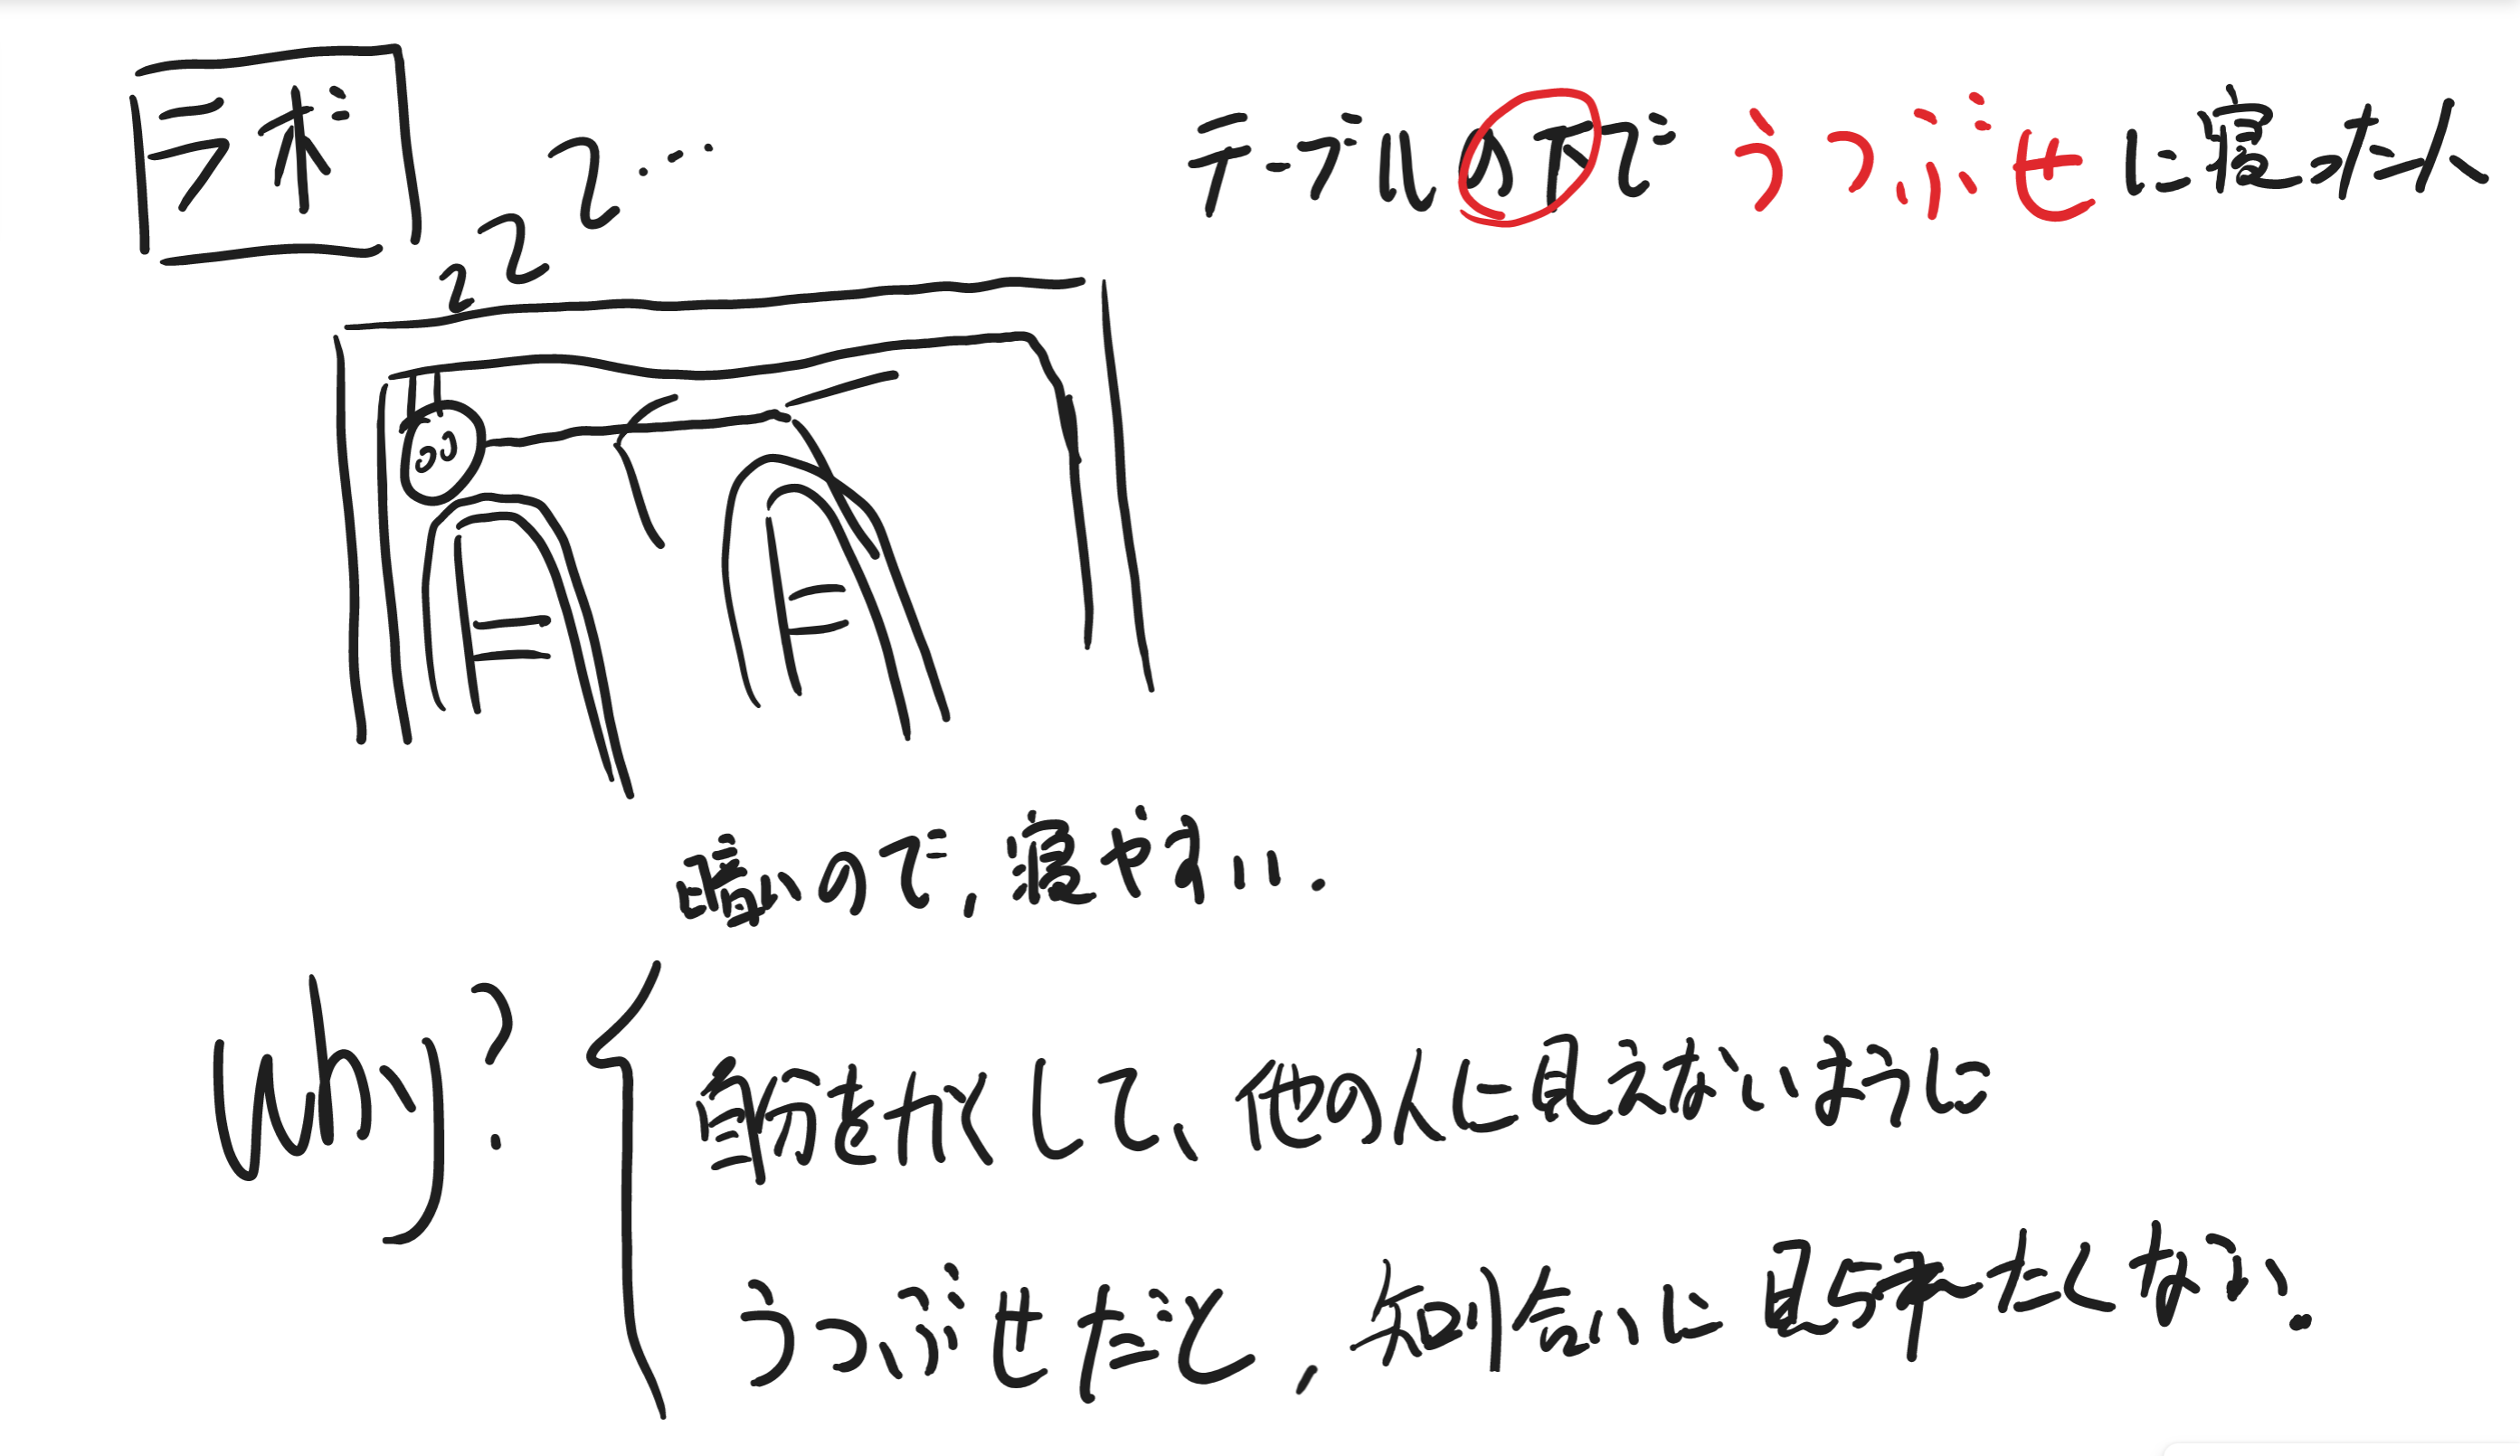 ラボ
zzz...
テーブルの下でうつぶせに寝た人
暗いので,寝やすい.
Why?
身分をかくして、他の人に見えないように
うつぶせだと,知り合いに見られたくない.